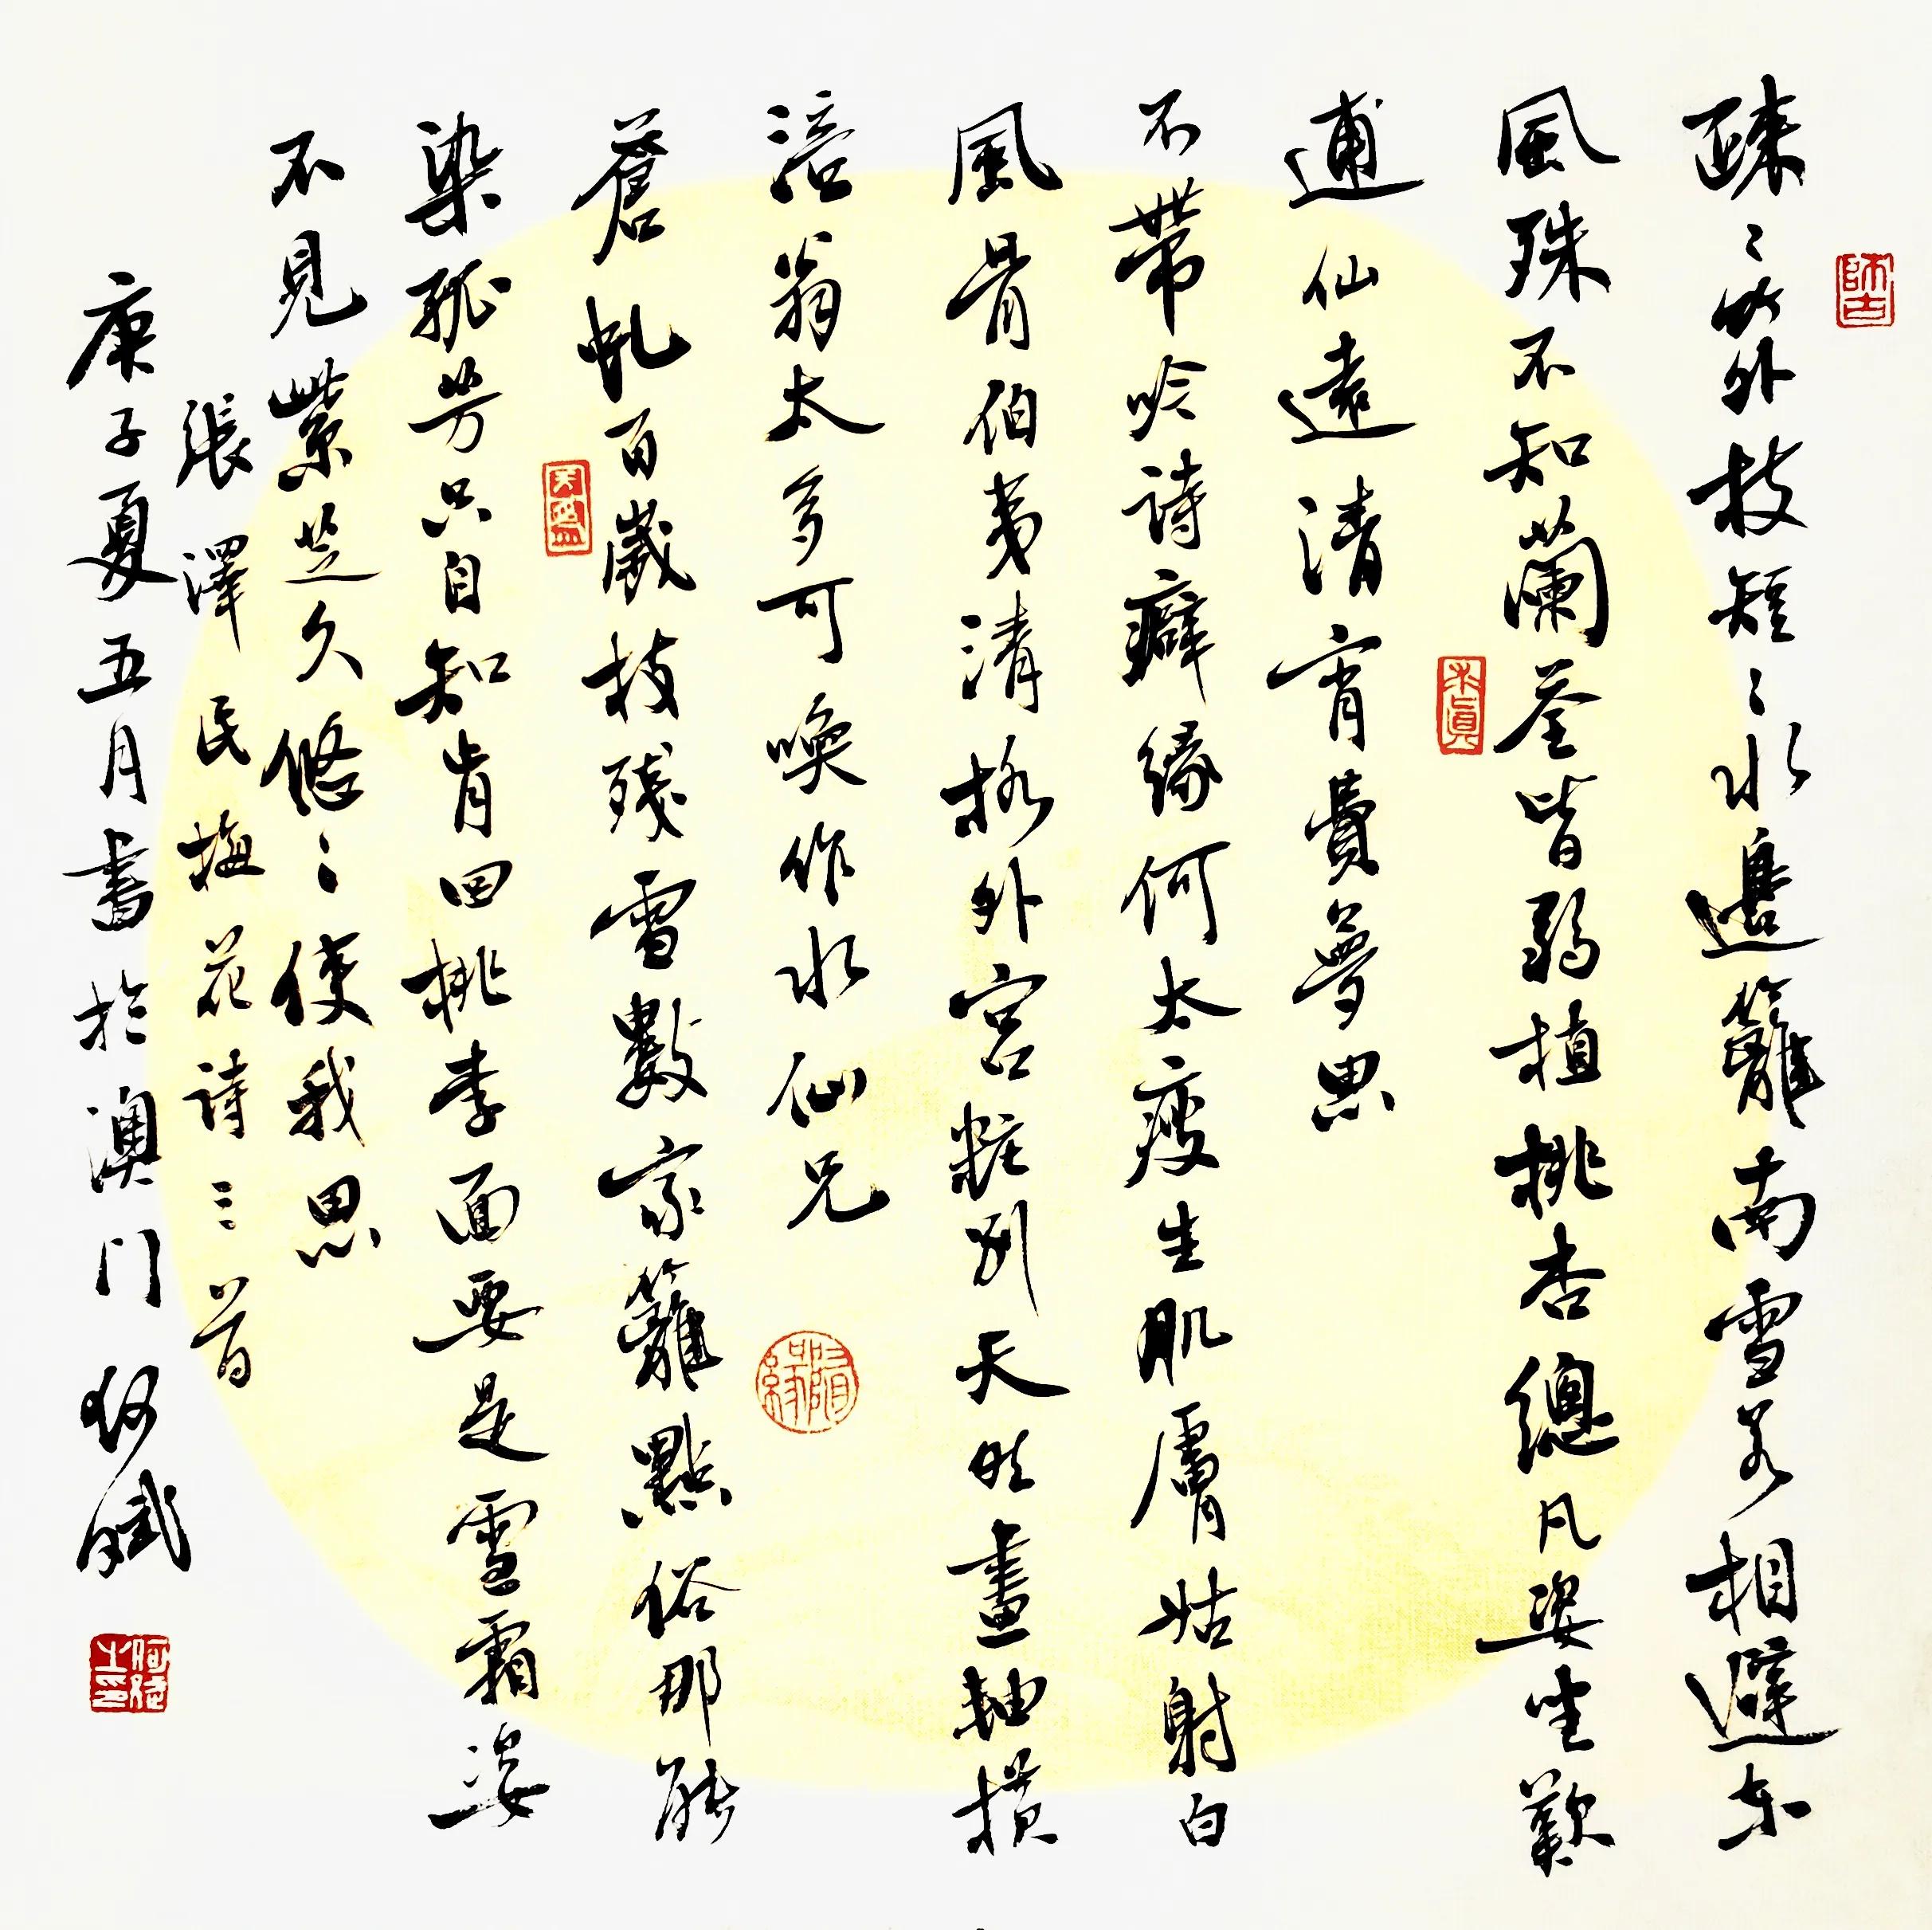 師古
疎〻竹外枝短〻水邊籬南雪若相避東
風殊不知蘭荃皆弱植桃杏總凡姿坐歎
求真
逋仙遠清宵費夢思
不帶吟詩癖緣何太瘦生肌膚姑射白
風骨伯夷清格外宮粧別天然畫軸橫
涪翁太多可喚作水仙兄
隨緣
蒼虬百歲枝殘雪數家籬點俗那能
染孤芳只自知肯回桃李面要是雪霜姿
不見紫芝久悠〻使我思
張澤民梅花詩三首
庚子夏五月書於澳門